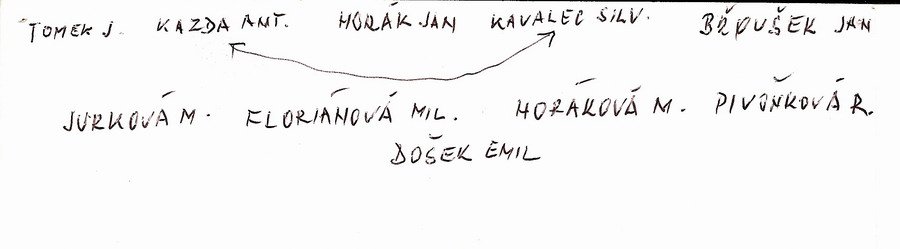 TOMEK J. KAZDA ANT. HORÁK JAN KAVALEC SILV. BŘOUŠEK JAN
JURKOVÁ M. FLORIÁNOVÁ MIL. HORÁKOVÁ M. PIVOŇKOVÁ R.
DOŠEK EMIL